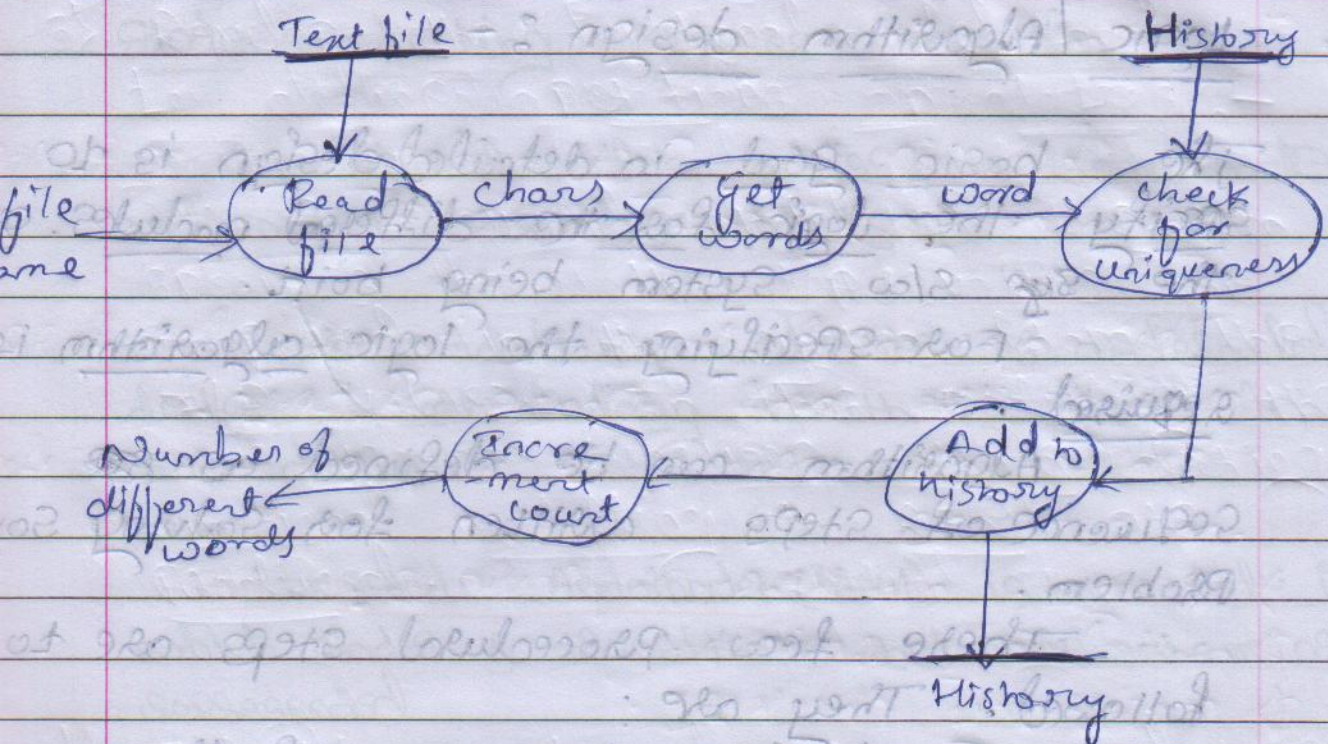 Text file
History
file
ame
Read
file
chars
Get
words
word
check
for
uniqueness
Number of
different
words
Incre
-ment
count
Add to
history
History